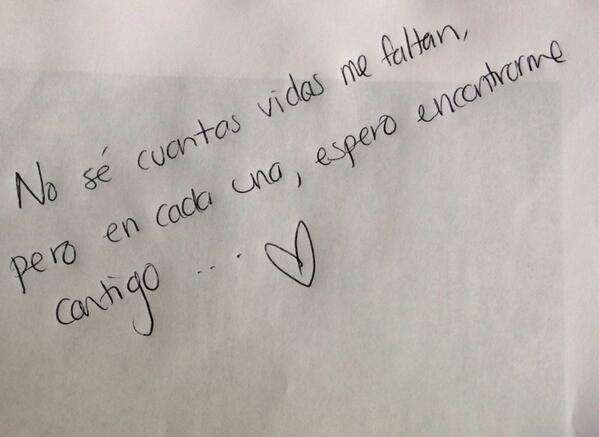 No sé cuantas vidas me faltan,
pero en cada una, espero encontrarme
contigo ... ♡